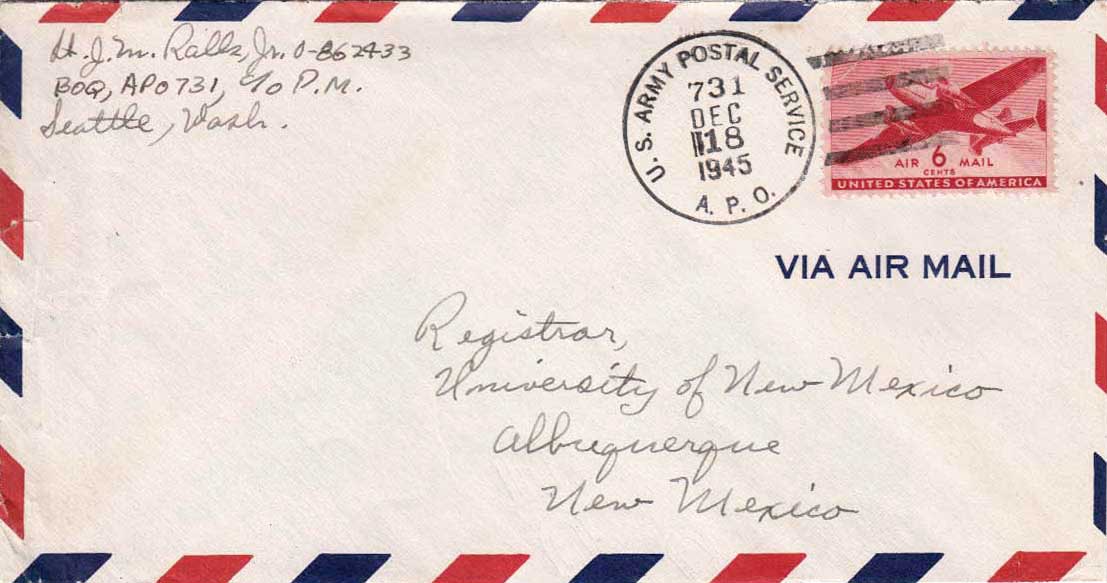 Lt. J. M. Ralls, Jr. O-862433
BOQ, APO 731, c/o P.M.
Seattle, Wash.
U. S. ARMY POSTAL SERVICE
731
DEC
18
1945
A. P. O.
AIR 6 MAIL
CENTS
UNITED STATES OF AMERICA
VIA AIR MAIL
Registrar,
University of New Mexico
Albuquerque
New Mexico